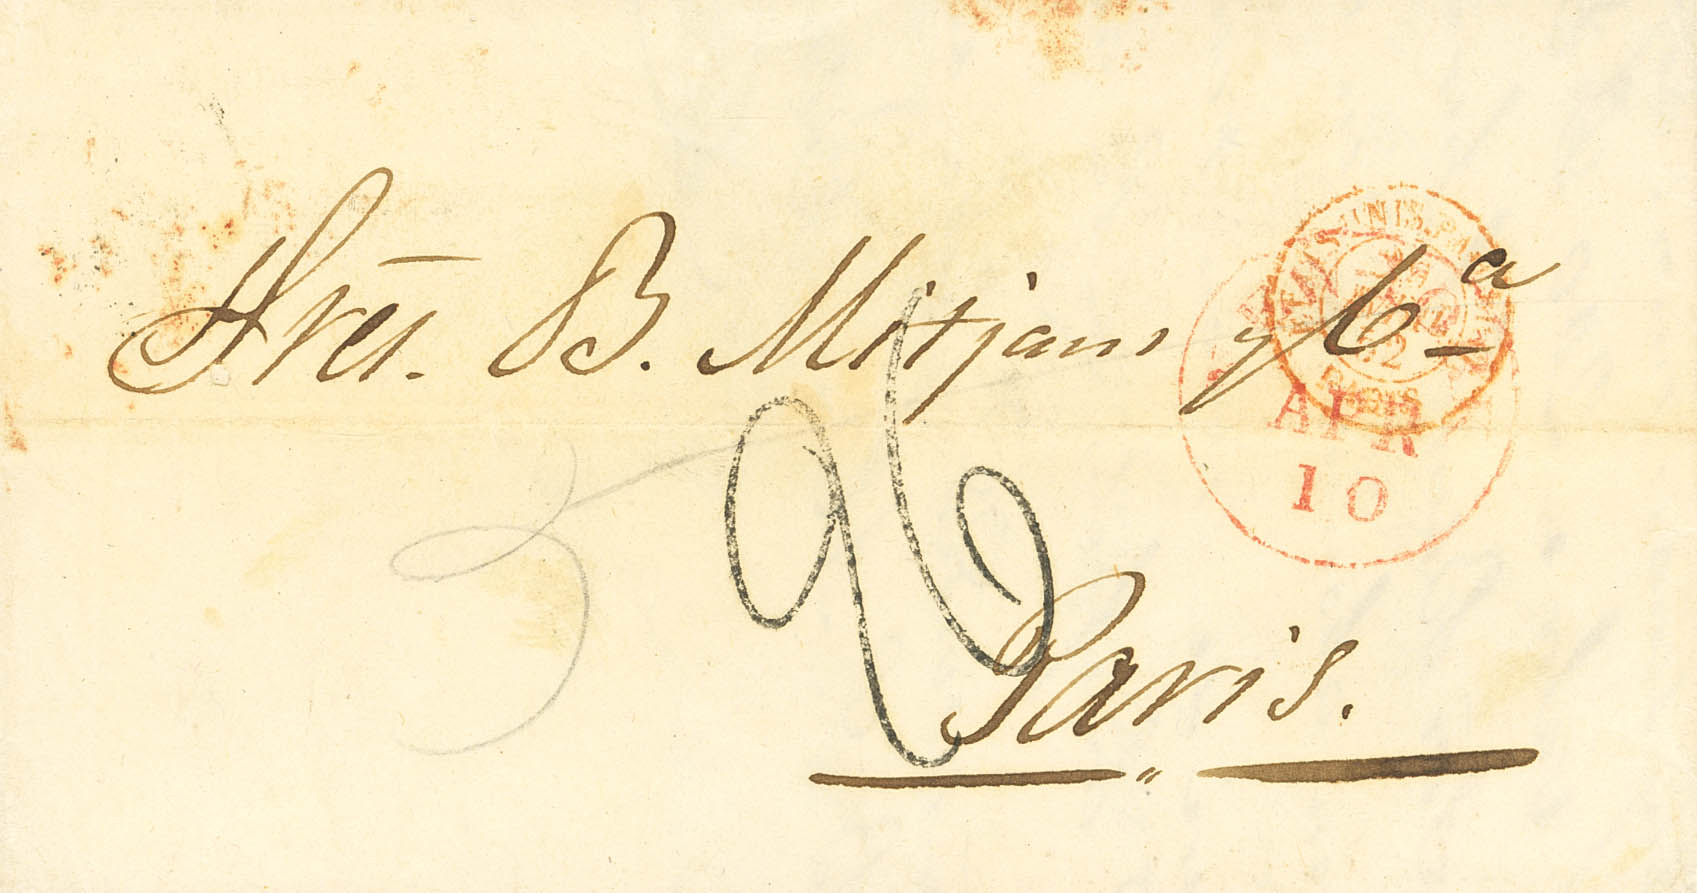 Sres. B. Mitjans y Ca
26
3
Paris.
APR
10
PARIS